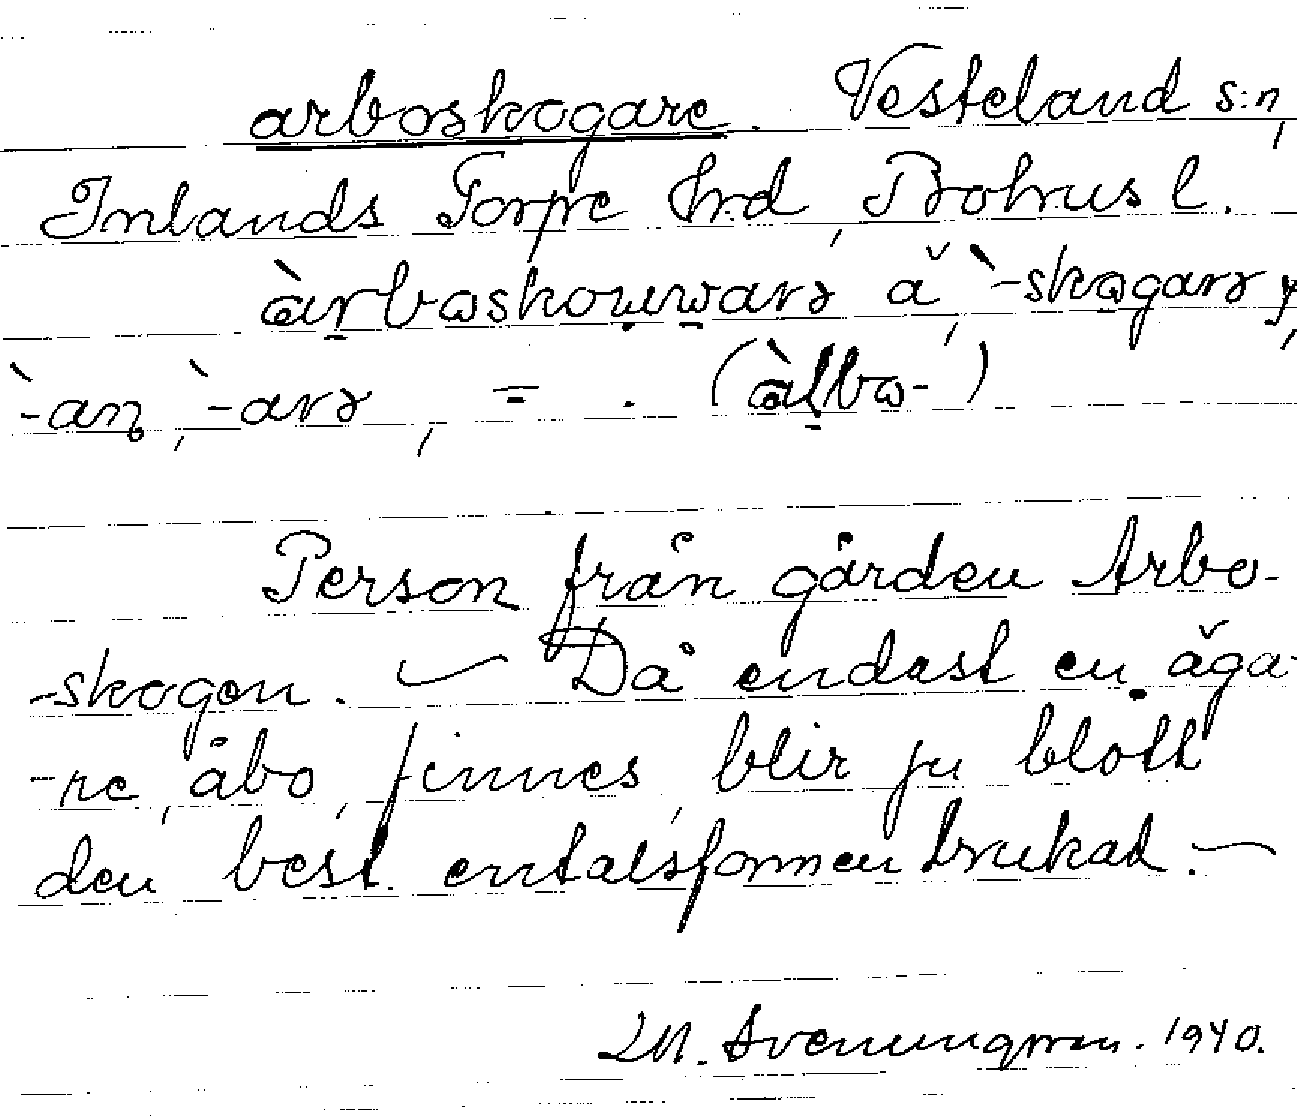 arboskogare. Vesteland s:n,
Inlands Torpe hrd, Bohusl.
àrbωskoɯwarə ă, `-skωgarə,
`-an, `-arə, = . (àlbω-)
Person från gården Arbo-
-skogen. — Då endast en äga-
-re, åbo, finnes, blir ju blott
den best. entalsformen brukad. —
M. Svenungsson. 1940.